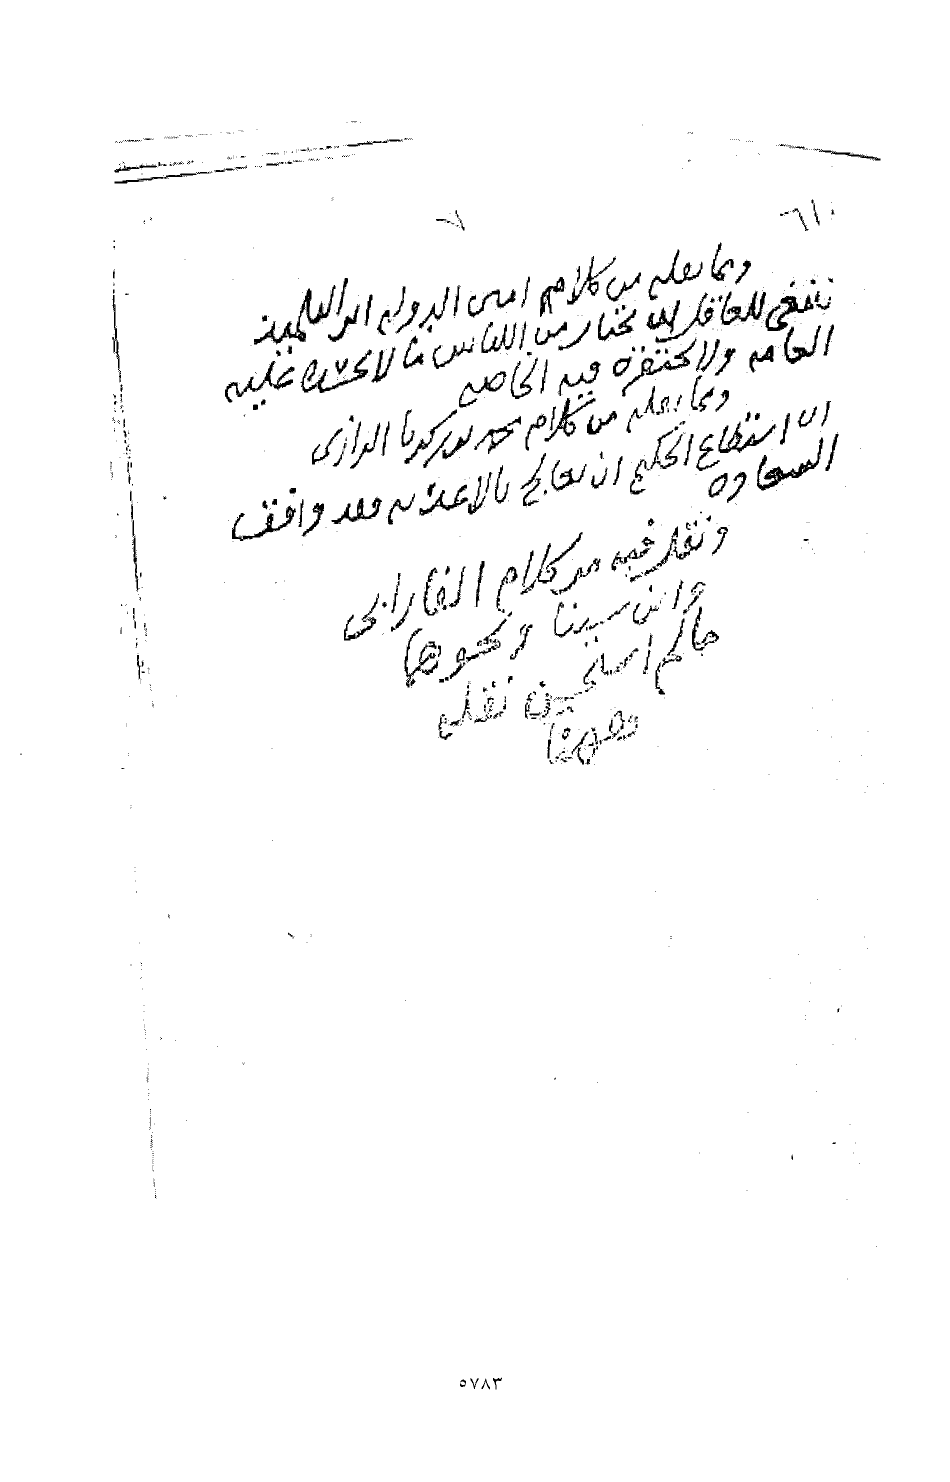 ٦١٠
ومما نقله من كلام امين الدولة ابن التلميذ
ينبغي للعاقل ان يختار من اللباس ما لا تحسده عليه
العامه ولا تحتقره فيه الخاصه
ومما نقله من كلام محمد بن زكريا الرازي
ان استطاع الحكيم ان يعالج بالاغذيه فقد وافق
السعاده
ونقل فيه من كلام الفارابي
وابن سينا ونحوها
مالم استحسن نقله
ههنا
٥٧٨٣